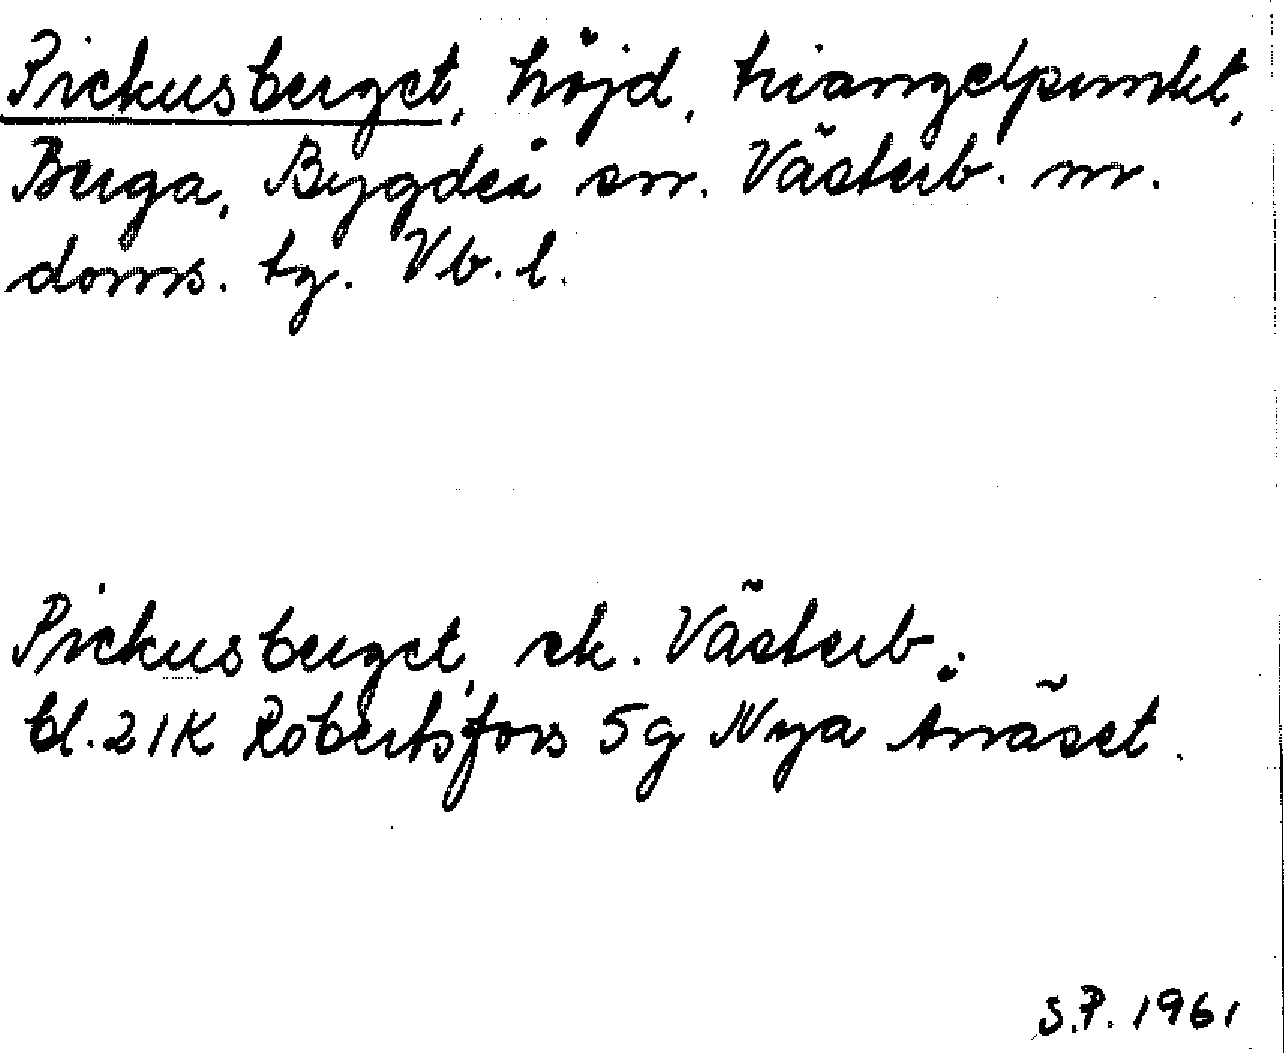 Pickusberget, höjd, triangelpunkt,
Berga, Bygdeå sn. Västerb. n.
doms. tg. Vb. l.
Pickusberget, ek. Västerb.
bl. 21K Robertsfors 5g Nya Ånäset.
S.P. 1961